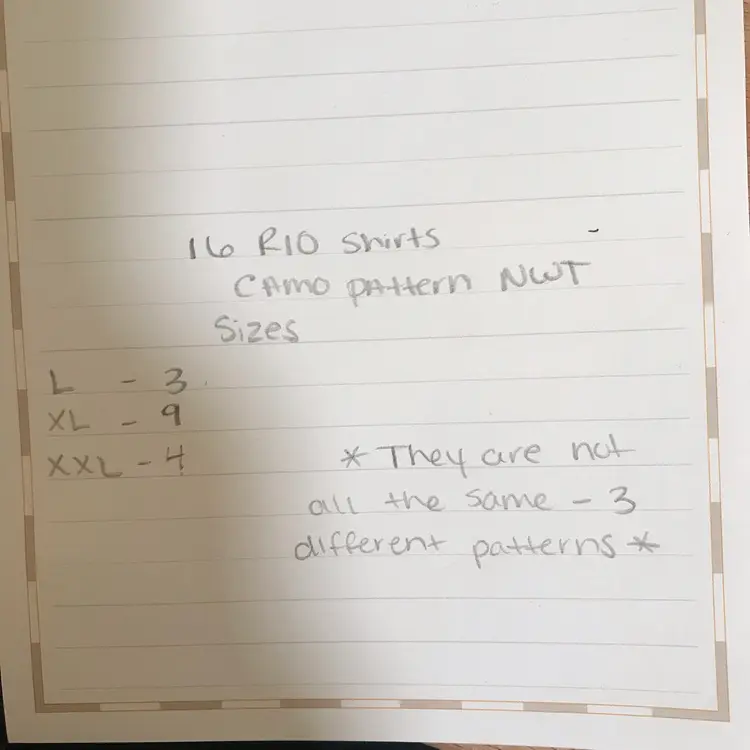 16 RIO Shirts
CAmo pAttern NWT
Sizes
L - 3
XL - 9
XXL - 4
* They are not
all the same - 3
different patterns *